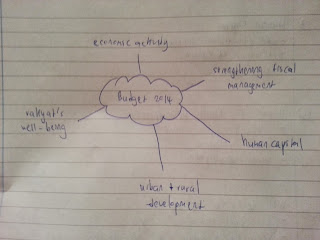 economic activity
strengthening fiscal
management
Budget 2014
rakyat's
well-being
human capital
urban + rural
development